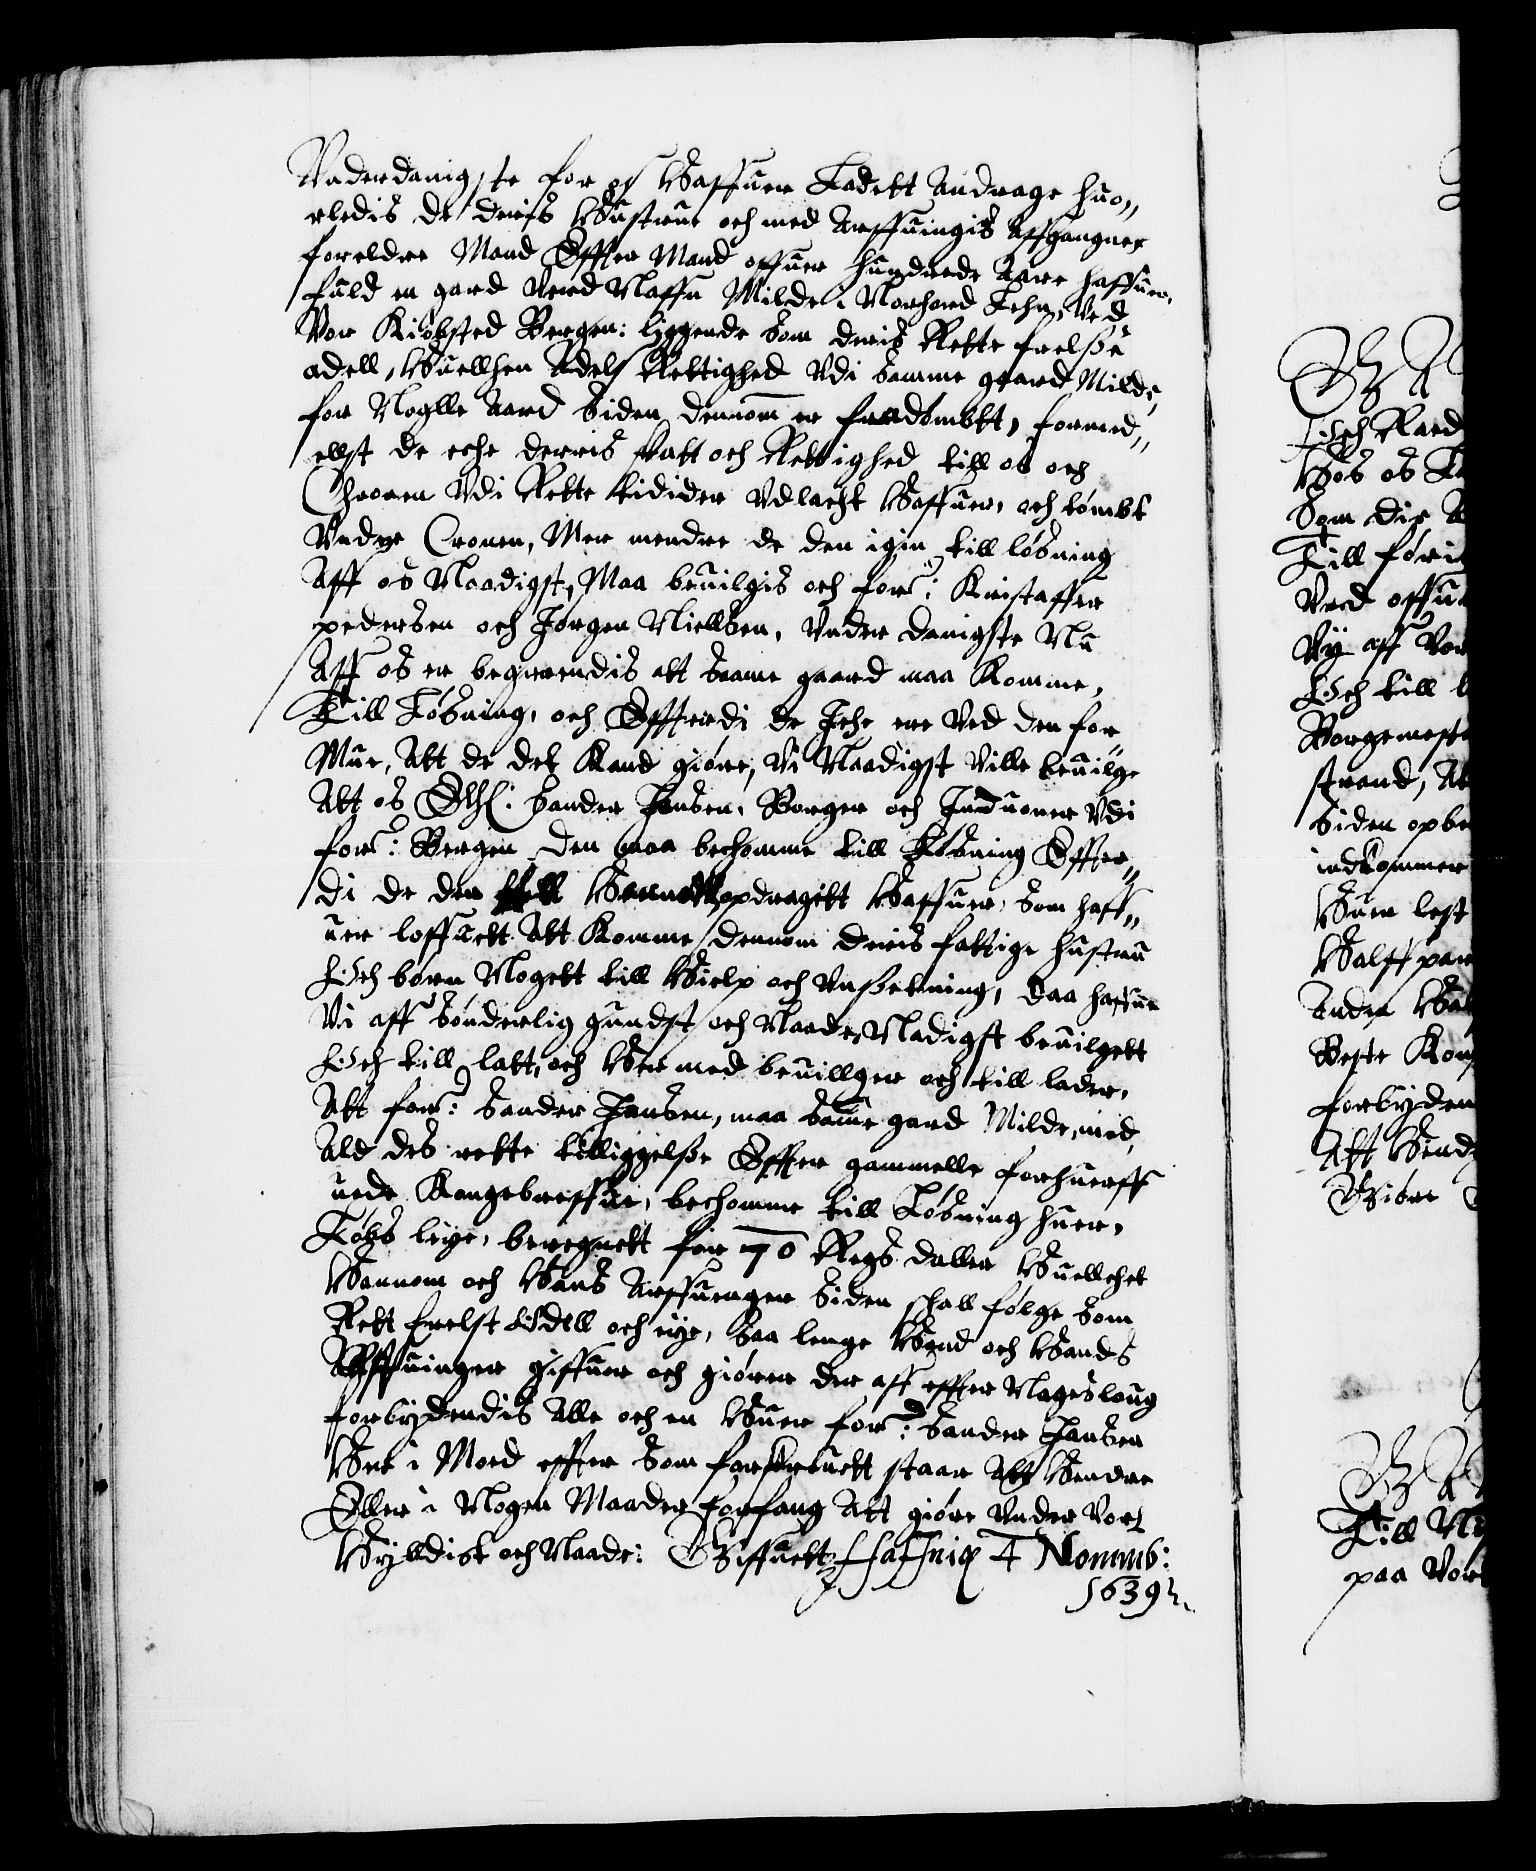 Underdanigste for os haffuer Ladett Andrage huo„
rledis de deris Hustruer och med Arffuingis Affgangner
foreldre Mand Effter Mand offuer hundrede Aare haffuer,
fuld en gard Ved Naffn Milde i Norhord Lehn, Ved
Vor Kiøbsted Bergen: liggende som deris Rette frelsse
odell, Huellhen Adels Rettighed Udi Samme gaard Milde,
for Noglle Aard Siden dennom er fradømbtt, formed„
ellst de eche derris skatt och Rettighed till os och
Chronen Udi Rette tidider Udlacht Haffuer, och dømbt
Under Cronen, Men mendre de den igin till løsning
Aff os Naadigst, Maa beuilgis och fors: Kristaffer
pedersen och Jørgen Niellsen, Under danigste Nu
Aff os er begierendis att Saame gaard maa Komme,
Till Løsning, och Effterdi de Iche ere Ved den for
Mue, Att de det Kand giøre, Vi Naadigst Ville beuilge
Att os Elsk: Sander Jensen, Borger och Induoner Udi
fors: Bergen den maa bechomme till Løsning Effter„
di de den till Hannom opdragett Haffuer, Som haff„
uer loffuett Att Komme dennom deris fattige hustru
Och børn Nogett till Hielp och Unßetning, Daa haffuer
Vi aff Sønderlig gundst och Naade, Nadigst beuilgett
Och till latt, och Her med beuillger och till lader,
Att fors: Sander Jansen, maa Samme gard Milde, med
Ald des rette tilliggelße Effter gammelle forhuerff
uede Kongebreffue, bechomme till Løsning huer,
Løbs leye, beregnett for 70 Regs daller Huellchet
Hannom och Hans Arffuenger Siden schall følge Som
Rett frelst Odell och eye, Saa lenge Hand och Hands
Arffuinger giffuer och giører der aff effter Nagesloug
forbydendis Alle och en Huer fors: Sander Jansen
Her i Mod effter Som forskreuett staar Att Hendre
Eller i Nogen Maader forfang Att giøre Under Vort
Hylldist och Naade: Giffuett Haffniæ 4 Nouemb:
1639